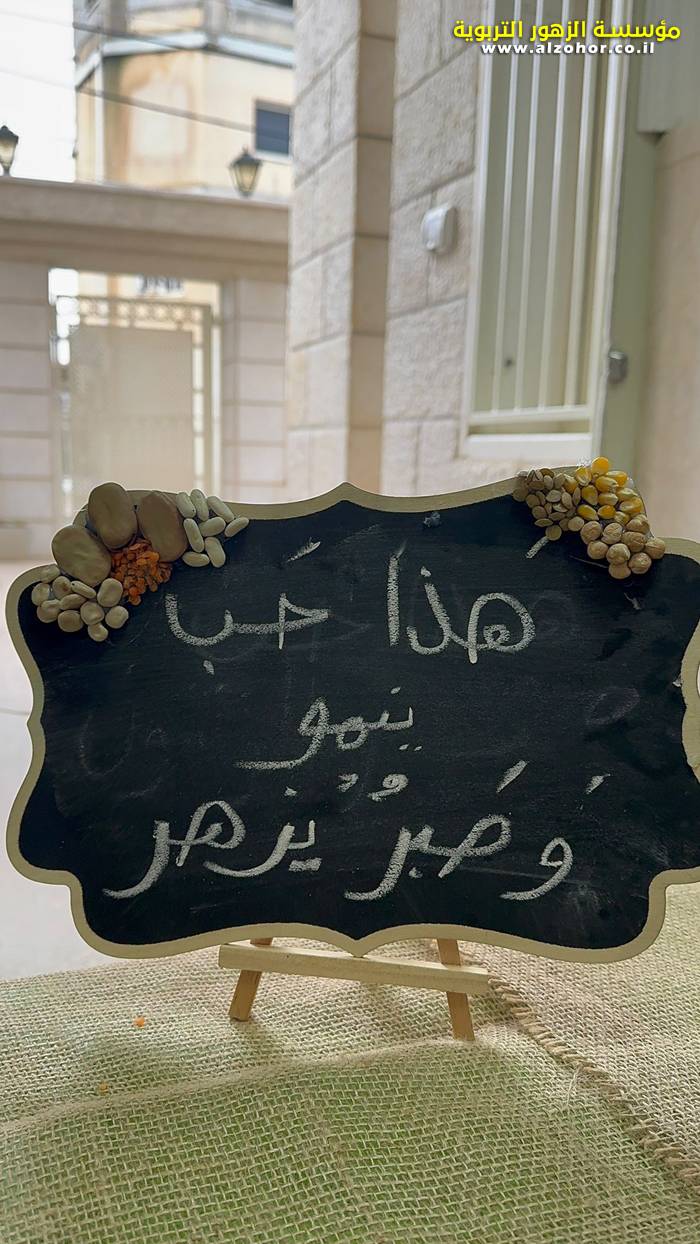 مؤسسة الزهور التربوية
www.alzohor.co.il
هَذا حَب
ينمو
وَصَبرٌ يزهر